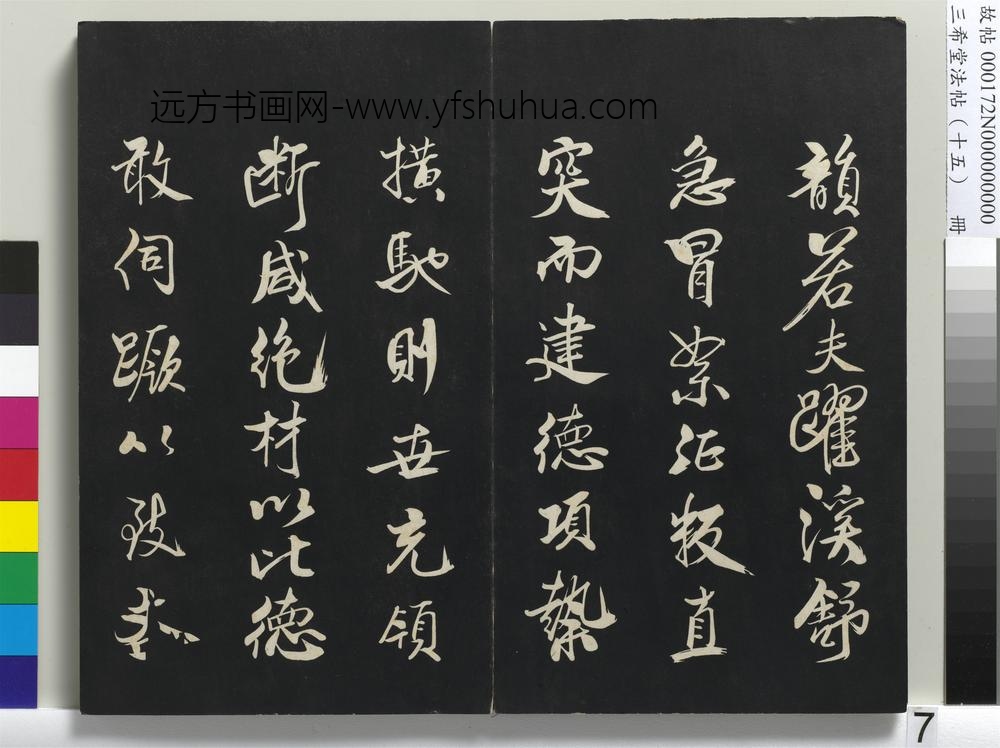 韻若夫躍溪舒
急冒絮征叛直
突而建德項縶
橫馳則世充領
断咸絶材以比德
敢伺蹶以致
远方书画网-www.yfshuhua.com
故帖 000172N000000000
三希堂法帖(十五) 冊
7